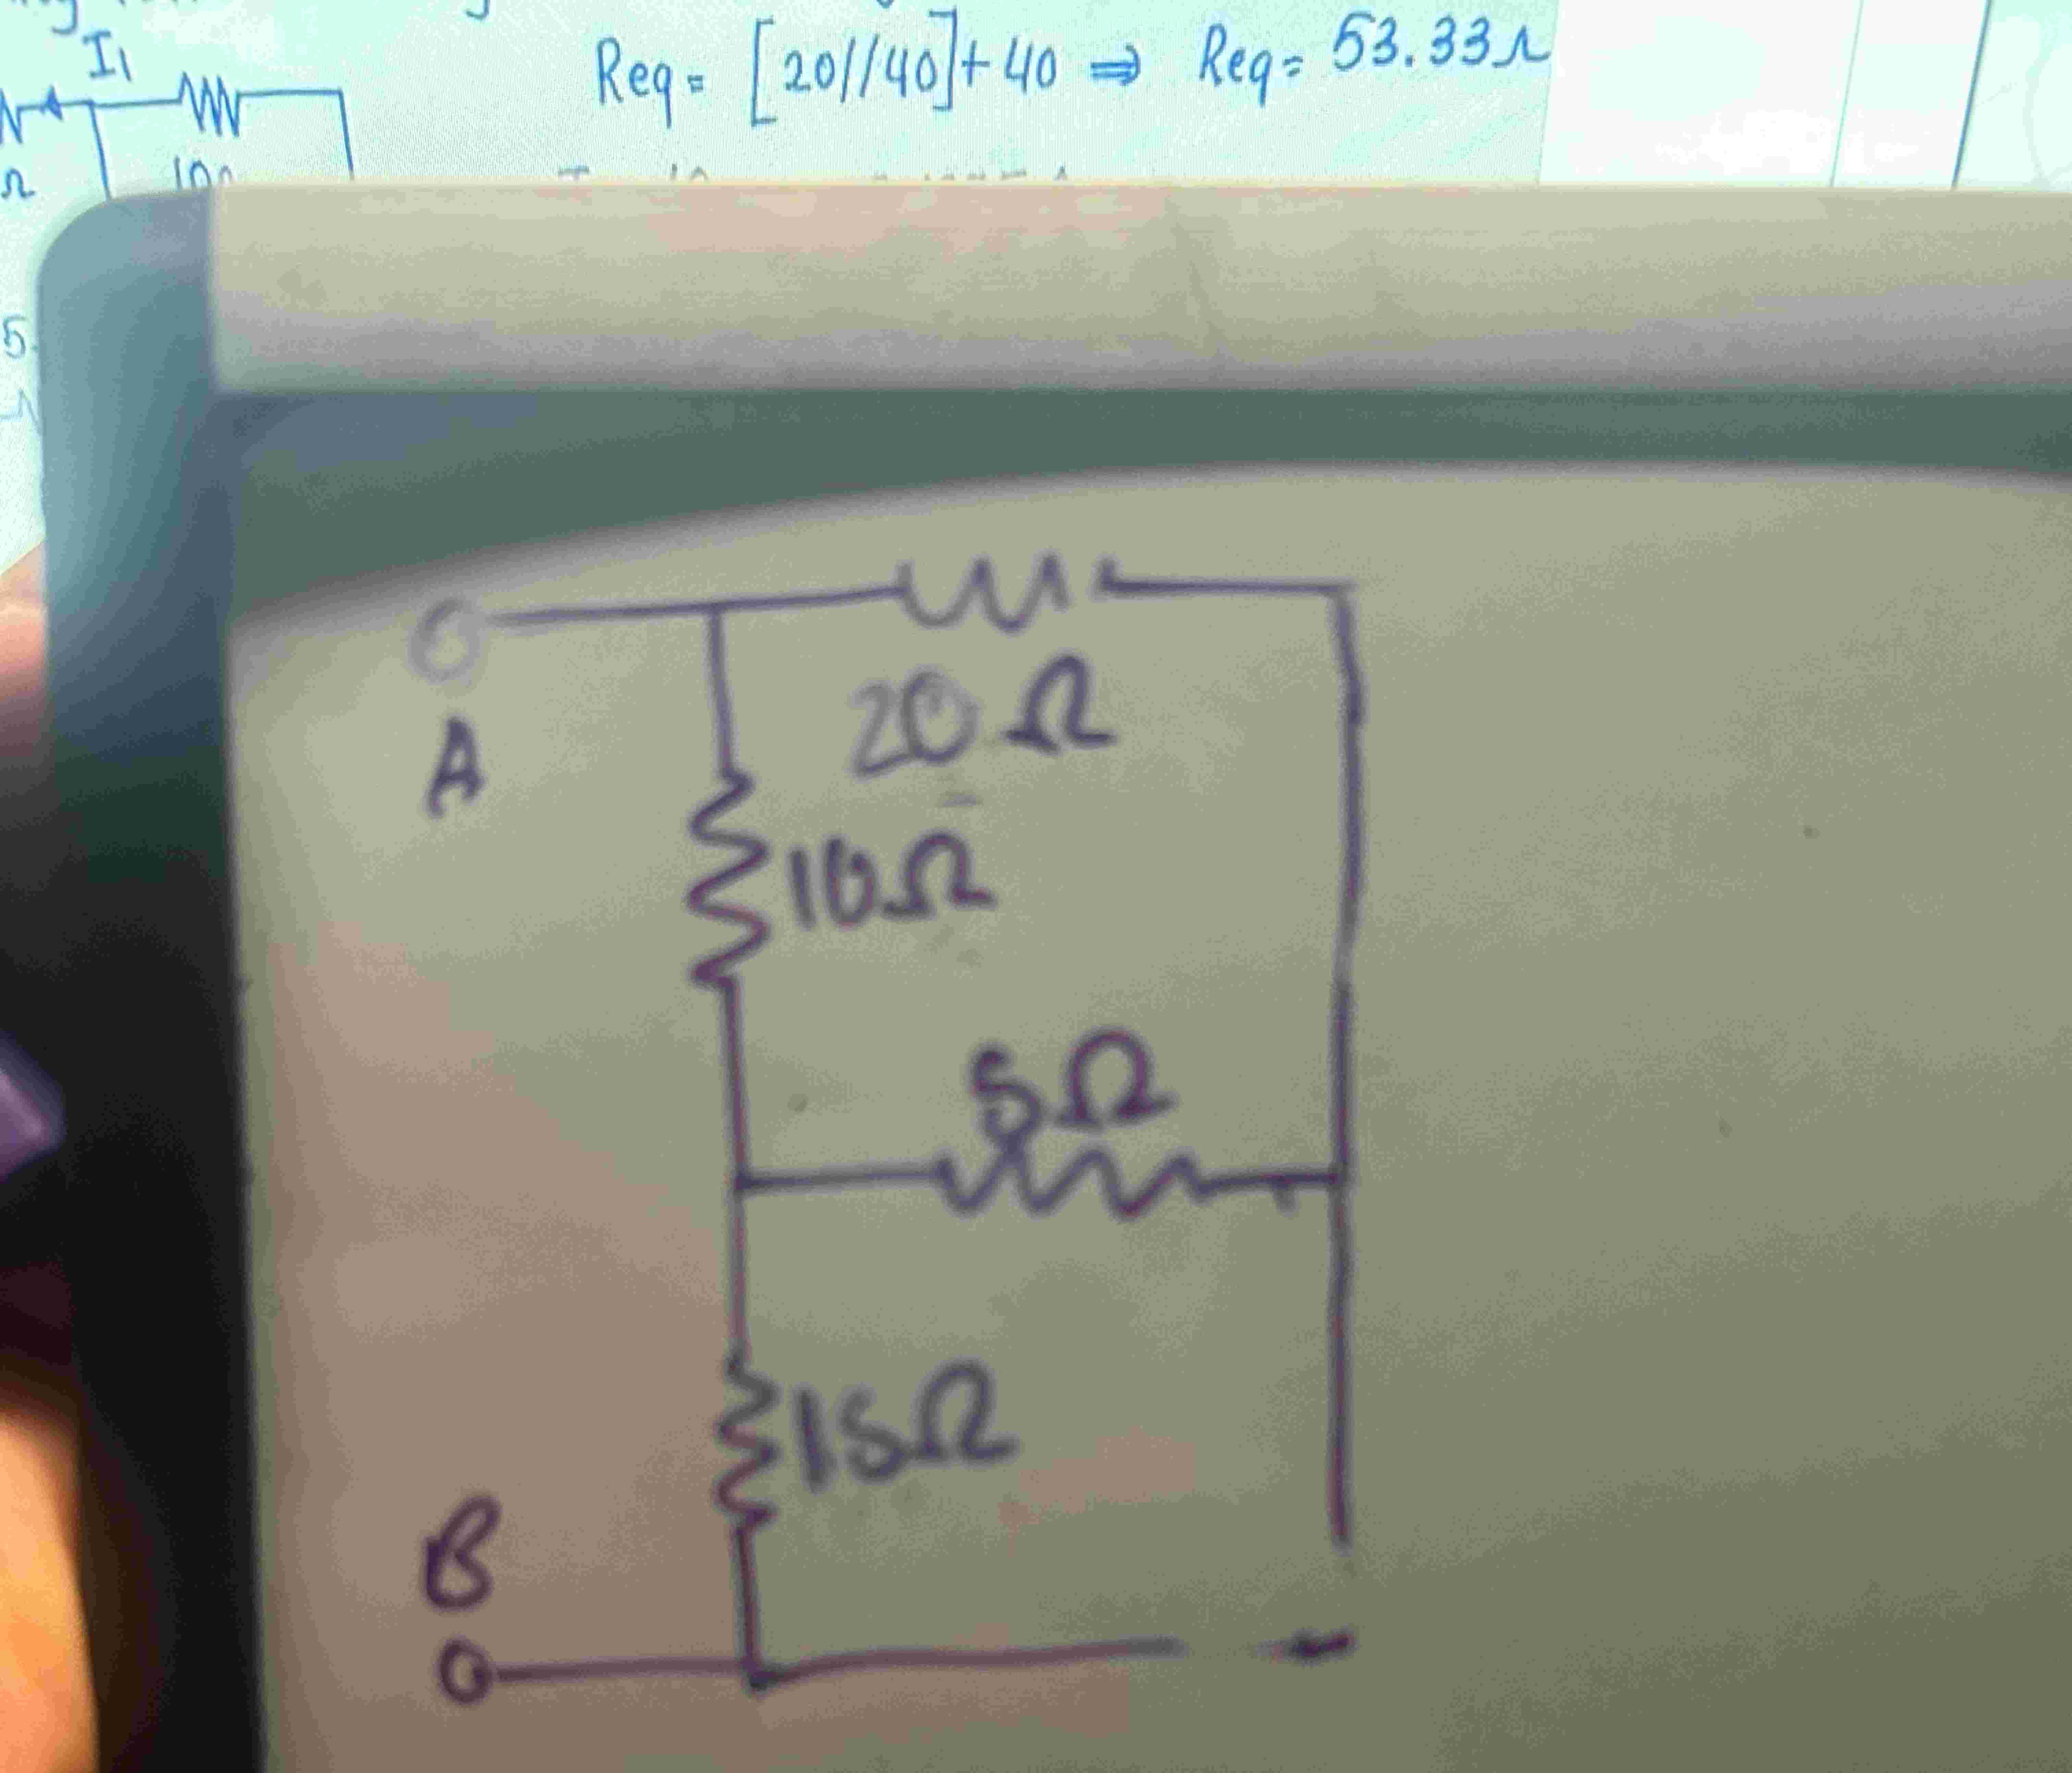 I1
Req = [20//40]+40 ⇒ Req = 53.33Ω
Ω
5
A
20Ω
10Ω
5Ω
15Ω
B